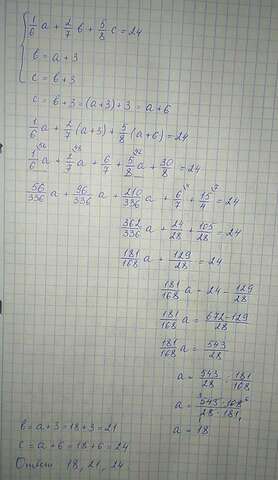 1/6 a + 2/7 b + 5/8 c = 24
b = a + 3
c = b + 3
c = b + 3 = (a+3) + 3 = a + 6
1/6 a + 2/7 (a+3) + 5/8 (a+6) = 24
1/6 a + 2/7 a + 6/7 + 5/8 a + 30/8 = 24
56/336 a + 96/336 a + 210/336 a + 6/7 + 15/4 = 24
362/336 a + 24/28 + 105/28 = 24
181/168 a + 129/28 = 24
181/168 a = 24 - 129/28
181/168 a = 672-129/28
181/168 a = 543/28
a = 543/28 : 181/168
a = 543·168/28·181
a = 18
b = a + 3 = 18 + 3 = 21
c = a + 6 = 18 + 6 = 24
Ответ 18, 21, 24